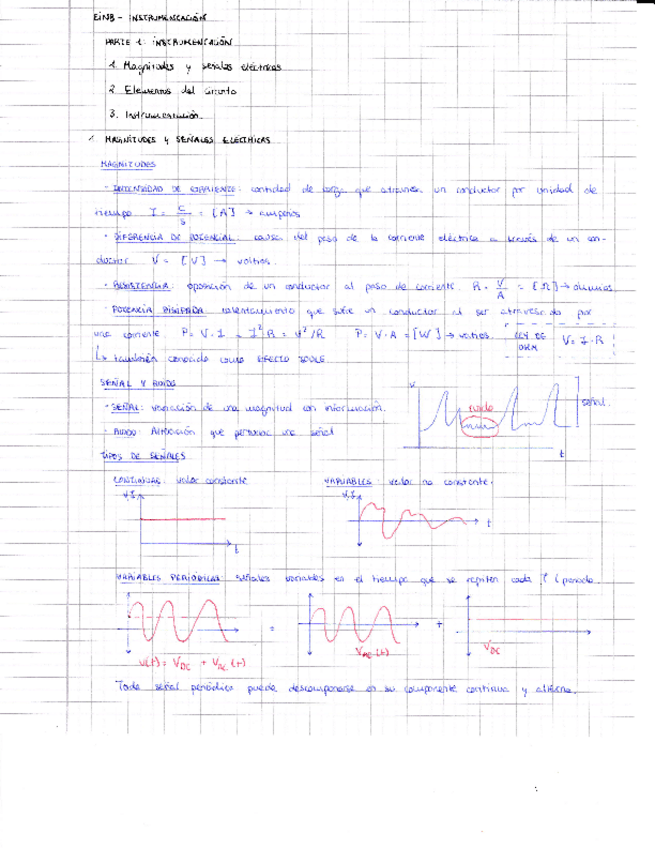 EINB - INSTRUMENTACIÓN
PARTE 1: INSTRUMENTACIÓN
1. Magnitudes y señales eléctricas
2. Elementos del circuito
3. Instrumentación
1. MAGNITUDES Y SEÑALES ELÉCTRICAS
MAGNITUDES
- INTENSIDAD DE CORRIENTE: cantidad de carga que atraviesa un conductor por unidad de
tiempo I = C/S = [A] → amperios
- DIFERENCIA DE POTENCIAL: causa del paso de la corriente eléctrica a través de un con-
ductor V = [V] → voltios.
- RESISTENCIA: oposición de un conductor al paso de corriente. R = V/A = [Ω] → ohmios
- POTENCIA DISIPADA: calentamiento que sufre un conductor al ser atravesado por
una corriente. P = V·I = I²R = V²/R P = V·A = [W] → watios. LEY DE OHM V = I·R
↳ también conocido como EFECTO JOULE
SEÑAL Y RUIDO
- SEÑAL: variación de una magnitud con información.
- RUIDO: Alteración que perturba una señal
V ruido señal t
TIPOS DE SEÑALES
CONTINUAS: valor constante
VARIABLES: valor no constante.
V,I t
V,I t
VARIABLES PERIÓDICAS: señales variables en el tiempo que se repiten cada T (periodo
= +
V(t) = V_DC + V_AC (t)
V_AC (t)
V_DC
Toda señal periódica puede descomponerse en su componente continua y alterna.